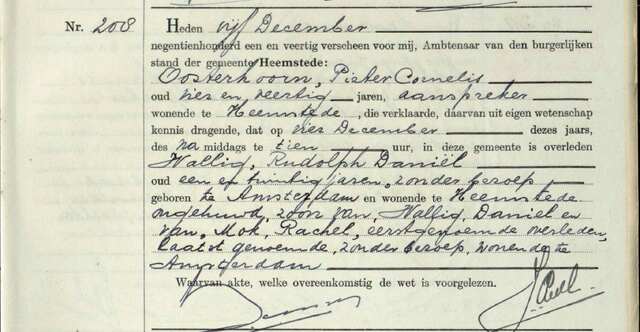 Nr. 208
Heden vijf December
negentienhonderd een en veertig verscheen voor mij, Ambtenaar van den burgerlijken
stand der gemeente Heemstede:
Oosterhoorn, Pieter Cornelis
oud vier en veertig jaren, aanspreker
wonende te Heemstede, die verklaarde, daarvan uit eigen wetenschap
kennis dragende, dat op vier December dezes jaars,
des na middags te tien uur, in deze gemeente is overleden
Wallig, Rudolph Daniël
oud een en twintig jaren, zonder beroep
geboren te Amsterdam en wonende te Heemstede
ongehuwd, zoon van, Wallig, Daniel en
van, Mok, Rachel, eerstgenoemde overleden,
laatst genoemde, zonder beroep, wonende te
Amsterdam
Waarvan akte, welke overeenkomstig de wet is voorgelezen.